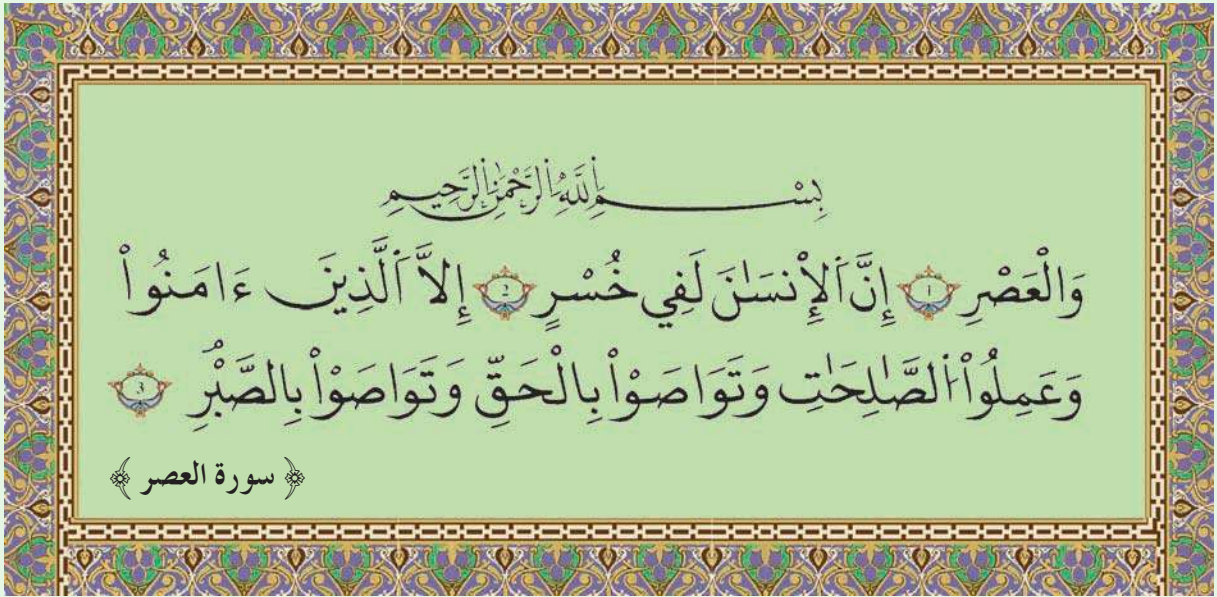 بِسْمِ ٱللَّهِ ٱلرَّحْمَٰنِ ٱلرَّحِيمِ
وَالْعَصْرِ ١ إِنَّ ٱلْإِنسَٰنَ لَفِي خُسْرٍ ٢ إِلاَّ ٱلَّذِينَ ءَامَنُواْ
وَعَمِلُواْ ٱلصَّٰلِحَٰتِ وَتَوَاصَوْاْ بِالْحَقِّ وَتَوَاصَوْاْ بِالصَّبْرِ ٣
﴿ سورة العصر ﴾